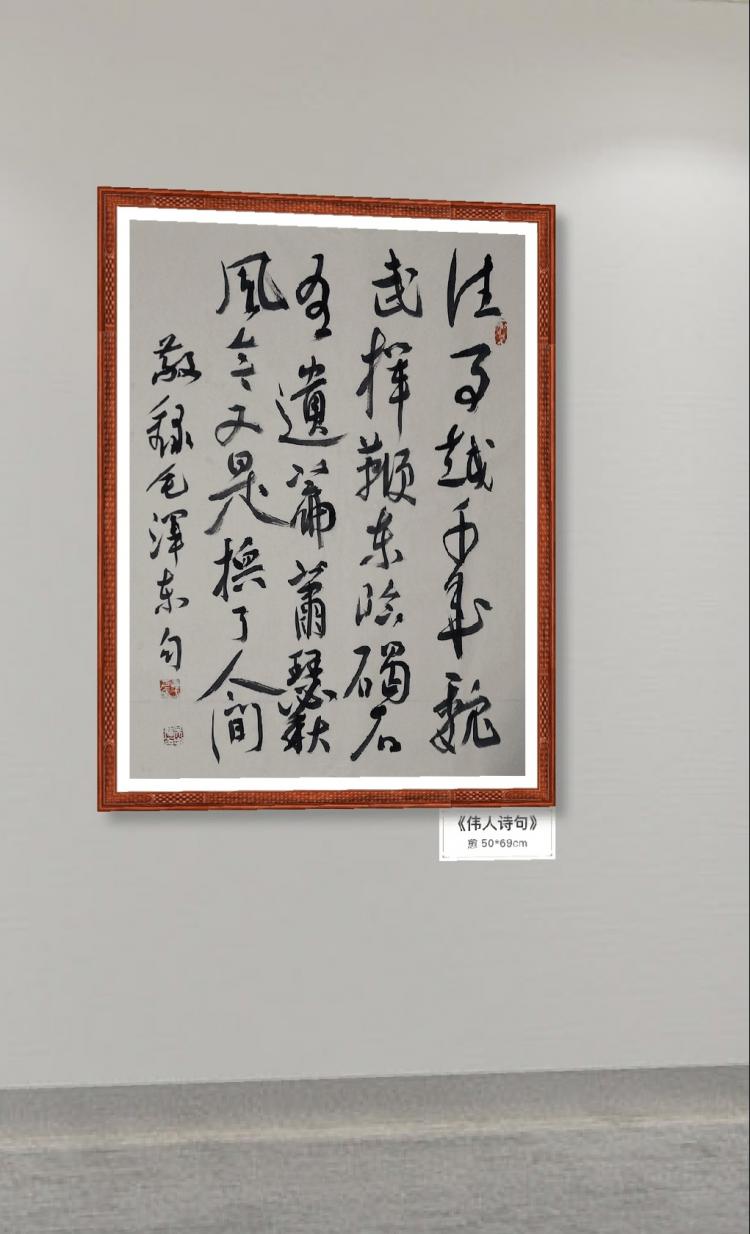 往事越千年魏
武揮鞭东临碣石
有遺篇蕭瑟秋
風今又是換了人间
敬録毛澤东句
《伟人诗句》
煎 50*69cm